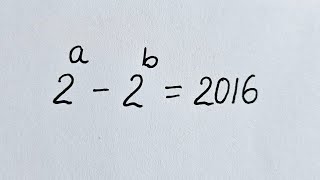 2ᵃ - 2ᵇ = 2016